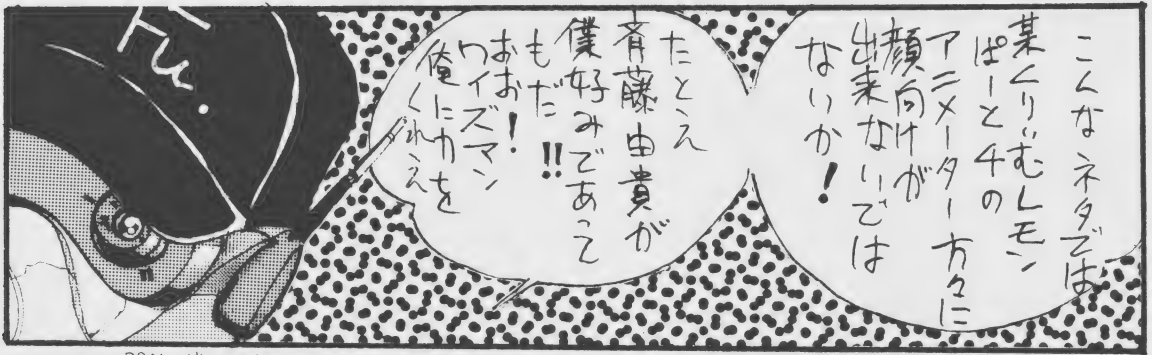 こんなネタでは
某くりぃむレモン
ぱーと4の
アニメーター方々に
顔向けが
出来ないでは
ないか!
たとえ
斉藤由貴が
僕好みであって
もだ!!
おお!
ワイズマン
俺に力を
くれえ
Fu.